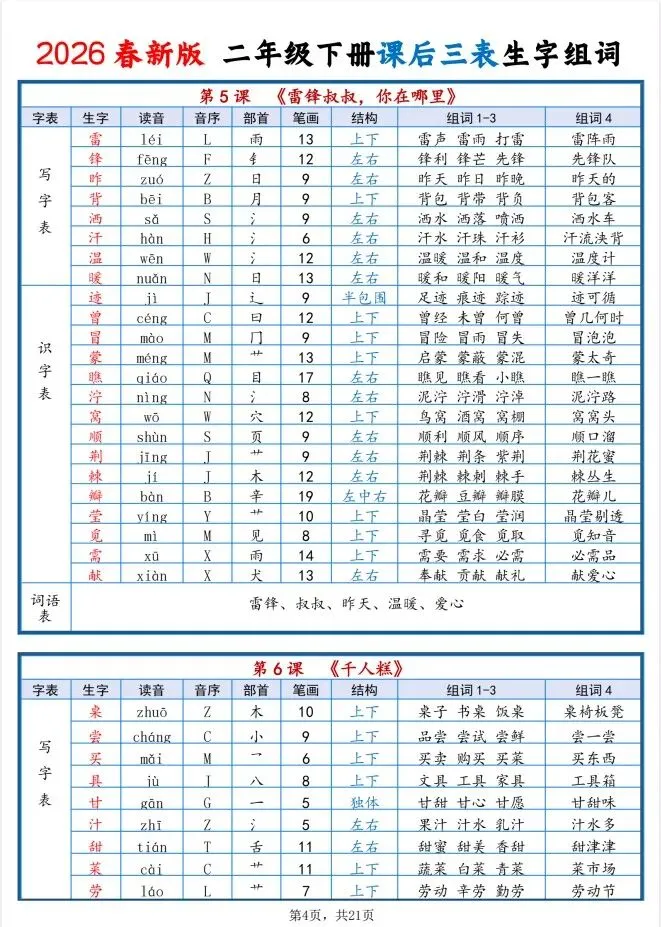 2026春新版 二年级下册课后三表生字组词
第5课 《雷锋叔叔，你在哪里》
字表 生字 读音 音序 部首 笔画 结构 组词1-3 组词4
写字表
雷 léi L 雨 13 上下 雷声 雷雨 打雷 雷阵雨
锋 fēng F 钅 12 左右 锋利 锋芒 先锋 先锋队
昨 zuó Z 日 9 左右 昨天 昨日 昨晚 昨天的
背 bēi B 月 9 上下 背包 背带 背负 背包客
洒 sǎ S 氵 9 左右 洒水 洒落 喷洒 洒水车
汗 hàn H 氵 6 左右 汗水 汗珠 汗衫 汗流浃背
温 wēn W 氵 12 左右 温暖 温和 温度 温度计
暖 nuǎn N 日 13 左右 暖和 暖阳 暖气 暖洋洋
识字表
迹 jì J 辶 9 半包围 足迹 痕迹 踪迹 迹可循
曾 céng C 曰 12 上下 曾经 未曾 何曾 曾几何时
冒 mào M 冂 9 上下 冒险 冒雨 冒失 冒泡泡
蒙 méng M 艹 13 上下 启蒙 蒙蔽 蒙混 蒙太奇
瞧 qiáo Q 目 17 左右 瞧见 瞧看 小瞧 瞧一瞧
泞 nìng N 氵 8 左右 泥泞 泞滑 泞淖 泥泞路
窝 wō W 穴 12 上下 鸟窝 酒窝 窝棚 窝窝头
顺 shùn S 页 9 左右 顺利 顺风 顺序 顺口溜
荆 jīng J 艹 9 左右 荆棘 荆条 紫荆 荆花蜜
棘 jí J 木 12 左右 荆棘 棘刺 棘手 棘丛生
瓣 bàn B 辛 19 左中右 花瓣 豆瓣 瓣膜 花瓣儿
莹 yíng Y 艹 10 上下 晶莹 莹白 莹润 晶莹剔透
觅 mì M 见 8 上下 寻觅 觅食 觅取 觅知音
需 xū X 雨 14 上下 需要 需求 必需 必需品
献 xiàn X 犬 13 左右 奉献 贡献 献礼 献爱心
词语表 雷锋、叔叔、昨天、温暖、爱心
第6课 《千人糕》
字表 生字 读音 音序 部首 笔画 结构 组词1-3 组词4
写字表
桌 zhuō Z 木 10 上下 桌子 书桌 饭桌 桌椅板凳
尝 cháng C 小 9 上下 品尝 尝试 尝鲜 尝一尝
买 mǎi M 乛 6 上下 买卖 购买 买菜 买东西
具 jù J 八 8 上下 文具 工具 家具 工具箱
甘 gān G 一 5 独体 甘甜 甘心 甘愿 甘甜味
汁 zhī Z 氵 5 左右 果汁 汁水 乳汁 汁水多
甜 tián T 舌 11 左右 甜蜜 甜美 香甜 甜津津
菜 cài C 艹 11 上下 蔬菜 白菜 青菜 菜市场
劳 láo L 艹 7 上下 劳动 辛劳 勤劳 劳动节
第4页，共21页